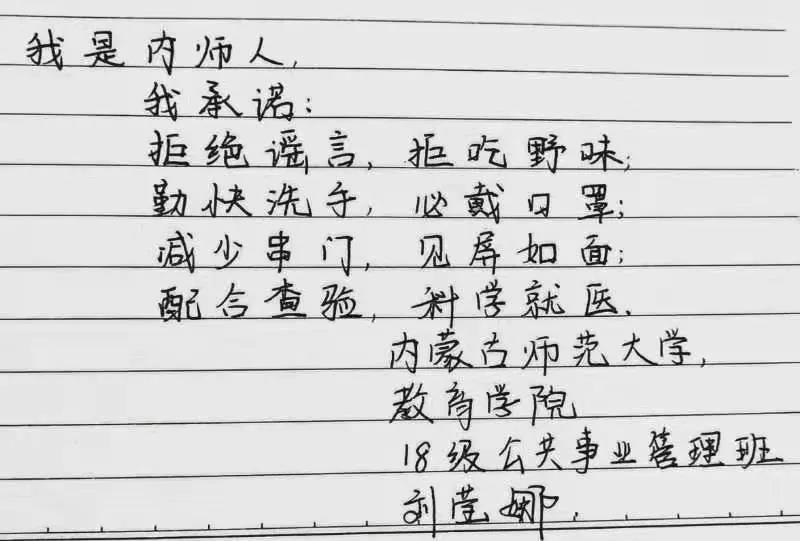 我是内师人,
我承诺:
拒绝谣言,拒吃野味;
勤快洗手,必戴口罩;
减少串门,见屏如面;
配合查验,科学就医.
内蒙古师范大学,
教育学院
18级公共事业管理班
刘莹娜